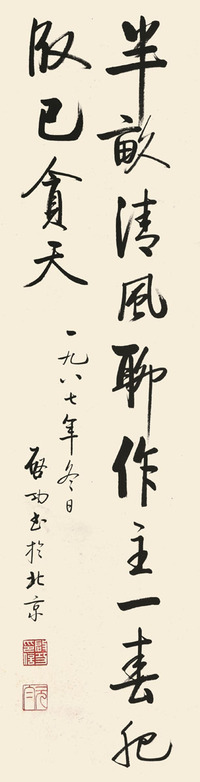 半畝清風聊作主一春肥
飯已貪天
一九八七年冬日
啓功書於北京